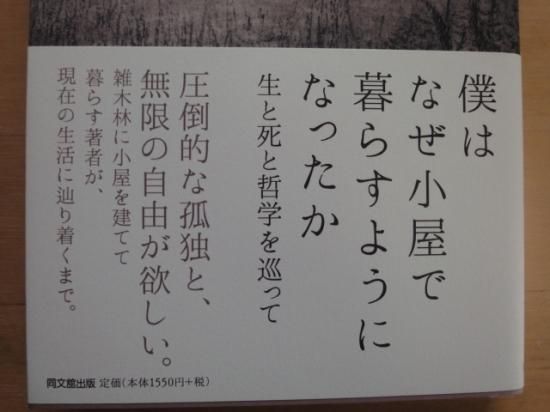 僕は
なぜ小屋で
暮らすように
なったか
生と死と哲学を巡って
圧倒的な孤独と、
無限の自由が欲しい。
雑木林に小屋を建てて
暮らす著者が、
現在の生活に辿り着くまで。
同文舘出版 定価(本体1550円+税)